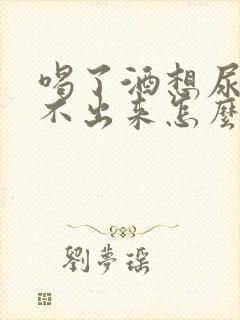 喝了酒想尿
不出来怎麼
劉夢瑶